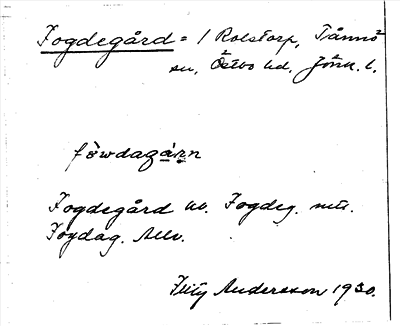 Fogdegård = / Rolstorp, Tånnö
sn, Östbo hd, Jönk. l.
fòwdagàṇn
Fogdegård kv. Fogdeg. mtr.
Fogdag. Allm.
Andersson 1930.